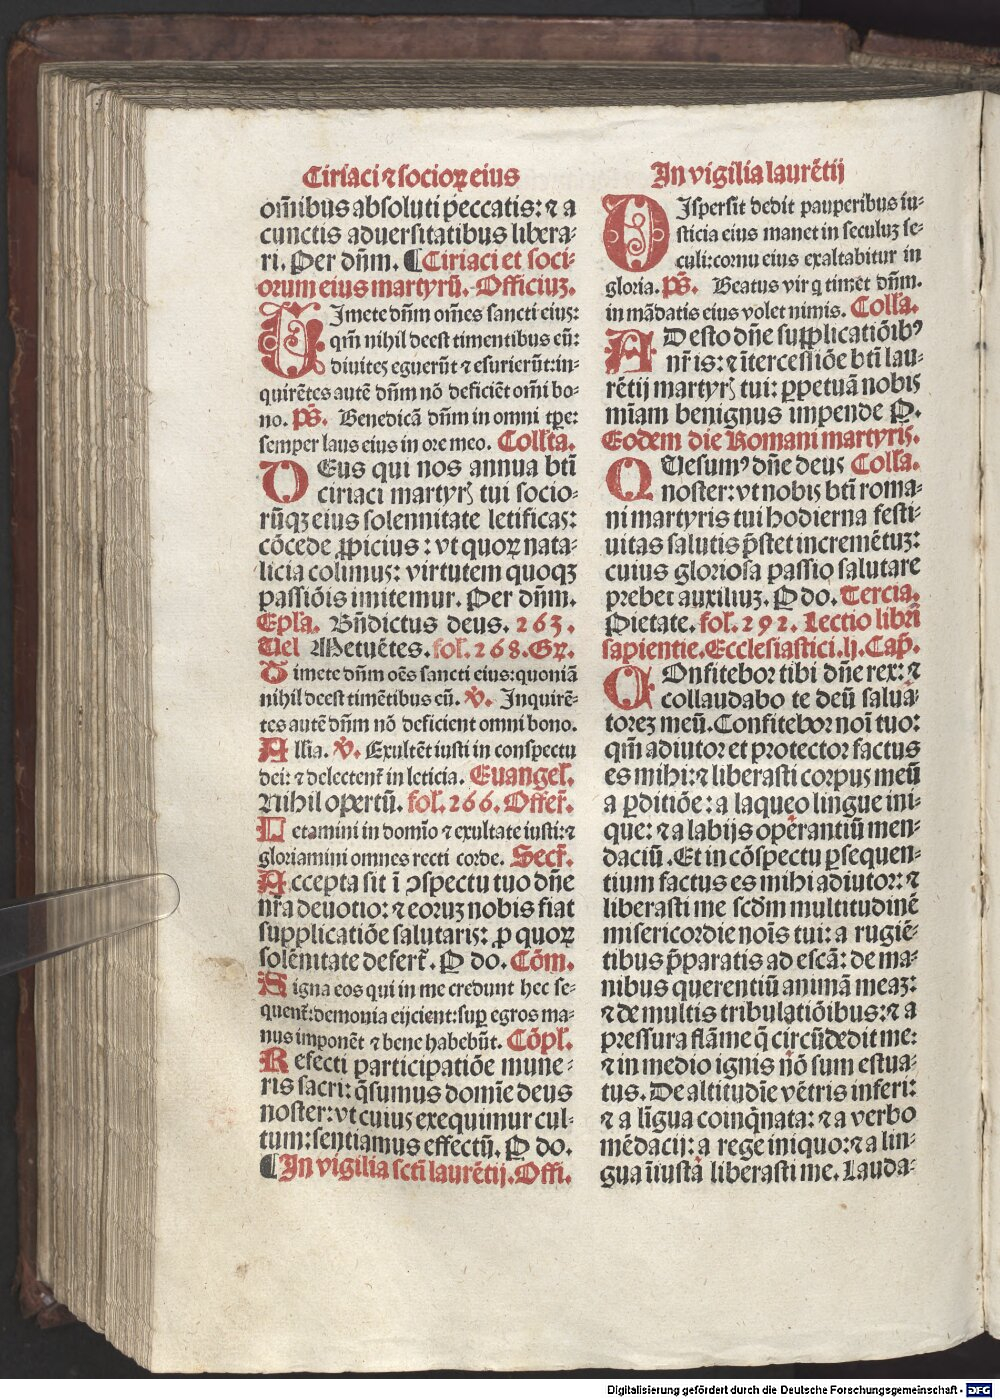 Ciriaci ⁊ socioꝝ eius
om̄ibus absoluti peccatis: ⁊ a
cunctis aduersitatibus libera⸗
ri. Per dn̄m. ¶Ciriaci et soci⸗
orum eius martyrū. Officiuꝫ.
Timete dn̄m om̄es sancti eius:
qm̄ nihil deest timentibus eū:
diuites eguerūt ⁊ esurierūt: in⸗
quirētes autē dn̄m nō deficiēt om̄i bo⸗
no. ps̄. Benedicā dn̄m in omni tꝑe:
semper laus eius in ore meo. Collcta.
DEus qui nos annua bt̄i
ciriaci martyrꝭ tui socio⸗
rūqꝫ eius solennitate letificas:
cōcede ꝓpicius: vt quoꝝ nata⸗
licia colimus: virtutem quoqꝫ
passiōis imitemur. Per dn̄m.
Epla. Bn̄dictus deus. 263.
Uel Metuētes. fol. 268. Gr̄.
Timete dn̄m oēs sancti eius: quoniā
nihil deest timētibus eū. ꝟ. Inquirē⸗
tes autē dn̄m nō deficient omni bono.
Allia. ꝟ. Exultēt iusti in conspectu
dei: ⁊ delectent̄ in leticia. Euangel.
Nihil opertū. fol. 266. Offer̄.
Letamini in domīo ⁊ exultate iusti: ⁊
gloriamini omnes recti corde. Secr̄.
Accepta sit ī ↄspectu tuo dn̄e
nr̄a deuotio: ⁊ eoruꝫ nobis fiat
supplicatiōe salutaris: ꝓ quoꝝ
solēnitate defert̄. P do. Cōm.
Signa eos qui in me credunt hec se⸗
quent̄: demonia eijcient: suꝑ egros ma⸗
nus imponēt ⁊ bene habebūt. Cōpl.
Refecti participatiōe mune⸗
ris sacri: q̄sumus domīe deus
noster: vt cuius exequimur cul⸗
tum: sentiamus effectū. P do.
¶In vigilia scti laurētij. Offi.
In vigilia laurētij
DIspersit dedit pauperibus iu⸗
sticia eius manet in seculuꝫ se⸗
culi: cornu eius exaltabitur in
gloria. ps̄. Beatus vir q timet dn̄m.
in mādatis eius volet nimis. Colla.
ADesto dn̄e supplicatiōibꝰ
nr̄is: ⁊ ītercessiōe bt̄i lau⸗
rētij martyrꝭ tui: ꝑpetuā nobis
mīam benignus impende P.
Eodem die Romani martyris.
QUesumꝰ dn̄e deus Colla.
noster: vt nobis bt̄i roma⸗
ni martyris tui hodierna festi⸗
uitas salutis p̄stet incremētuꝫ:
cuius gloriosa passio salutare
prebet auxiliuꝫ. P do. Tercia.
Pietate. fol. 292. Lectio libri
sapientie. Ecclesiastici. lj. Cap̄.
COnfitebor tibi dn̄e rex: ⁊
collaudabo te deū salua⸗
toreꝫ meū. Confitebor noī tuo:
qm̄ adiutor et protector factus
es mihi: ⁊ liberasti corpus meū
a ꝑditiōe: a laqueo lingue ini⸗
que: ⁊ a labijs operantiū men⸗
daciū. Et in cōspectu ꝑsequen⸗
tium factus es mihi adiutor: ⁊
liberasti me scd̄m multitudinē
misericordie noīs tui: a rugiē⸗
tibus p̄paratis ad escā: de ma⸗
nibus querentiū animā meaꝫ:
⁊ de multis tribulatiōibus: ⁊ a
pressura flāme q̄ circūdedit me:
⁊ in medio ignis nō sum estua⸗
tus. De altitudīe vētris inferi:
⁊ a līgua coinq̄nata: ⁊ a verbo
mēdacij: a rege iniquo: ⁊ a lin⸗
gua īiusta liberasti me. Lauda⸗
Digitalisierung gefördert durch die Deutsche Forschungsgemeinschaft - DFG